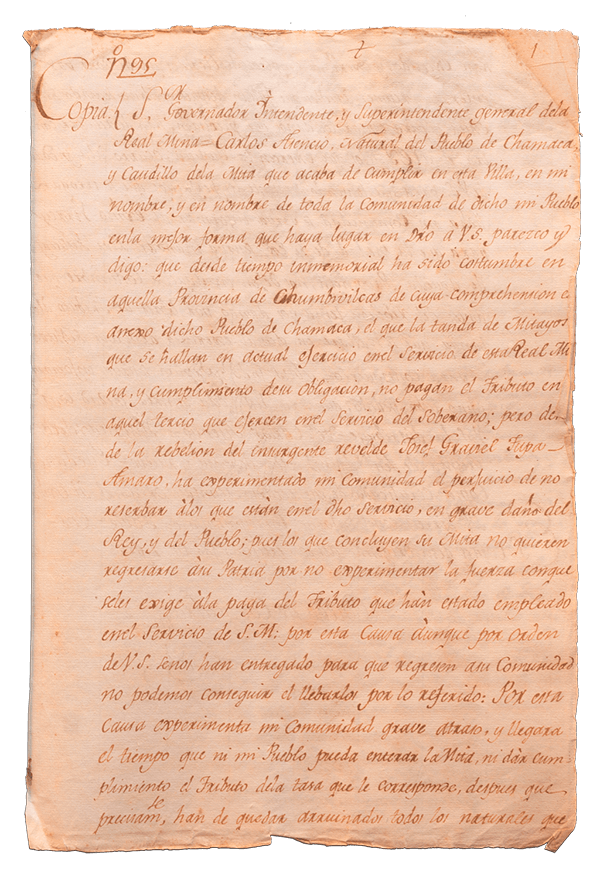 1
nº 95
Copia. { S.or Governador Yntendente, y Superintendente general dela
Real Mina = Carlos Asencio, Natural del Pueblo de Chamaca,
y Caudillo dela Mita que acaba de cumplir en esta Villa, en mi
nombre, y en nombre de toda la Comunidad de dicho mi Pueblo
enla mejor forma que haya lugar en Dro à V.S. parezco y
digo: que desde tiempo inmemorial ha sido costumbre en
aquella Provincia de Chumbivilcas de cuya comprehension e
anexo dicho Pueblo de Chamaca, el que la tanda de Mitayos
que se hallan en actual exercicio enel Servicio de esta Real Mi
na, y cumplimiento desu obligacion, no pagan el Tributo en
aquel tercio que exercen enel Servicio del Soberano; pero des-
de la rebelion del insurgente revelde Josef Graviel Tupa
Amaro, ha experimentado mi Comunidad el perjuicio de no
reserbar àlos que están enel dho Servicio, en grave daño del
Rey, y del Pueblo; pues los que concluyen su Mita no quieren
regresarse àsu Patria por no experimentar la fuerza conque
seles exige àla paga del Tributo que hán estado empleado
enel Servicio de S.M: por esta Causa àunque por orden
de V.S. senos han entregado para que regresen asu Comunidad
no podemos conseguir el llebarlos por lo referido: Por esta
Causa experimenta mi Comunidad grave atraso, y llegara
el tiempo que ni mi Pueblo pueda enterar la Mita, ni dàr cum-
plimiento el Tributo dela tasa que le corresponde, despues que
se
precuam, han de quedar arruinados todos los naturales que